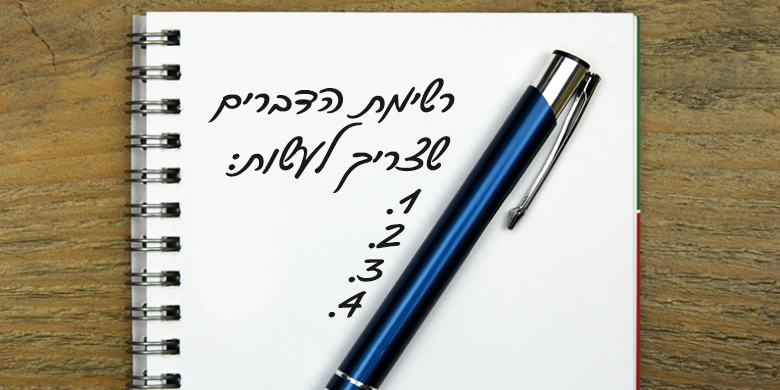 רשימת הדברים
שצריך לעשות:
1.
2.
3.
4.